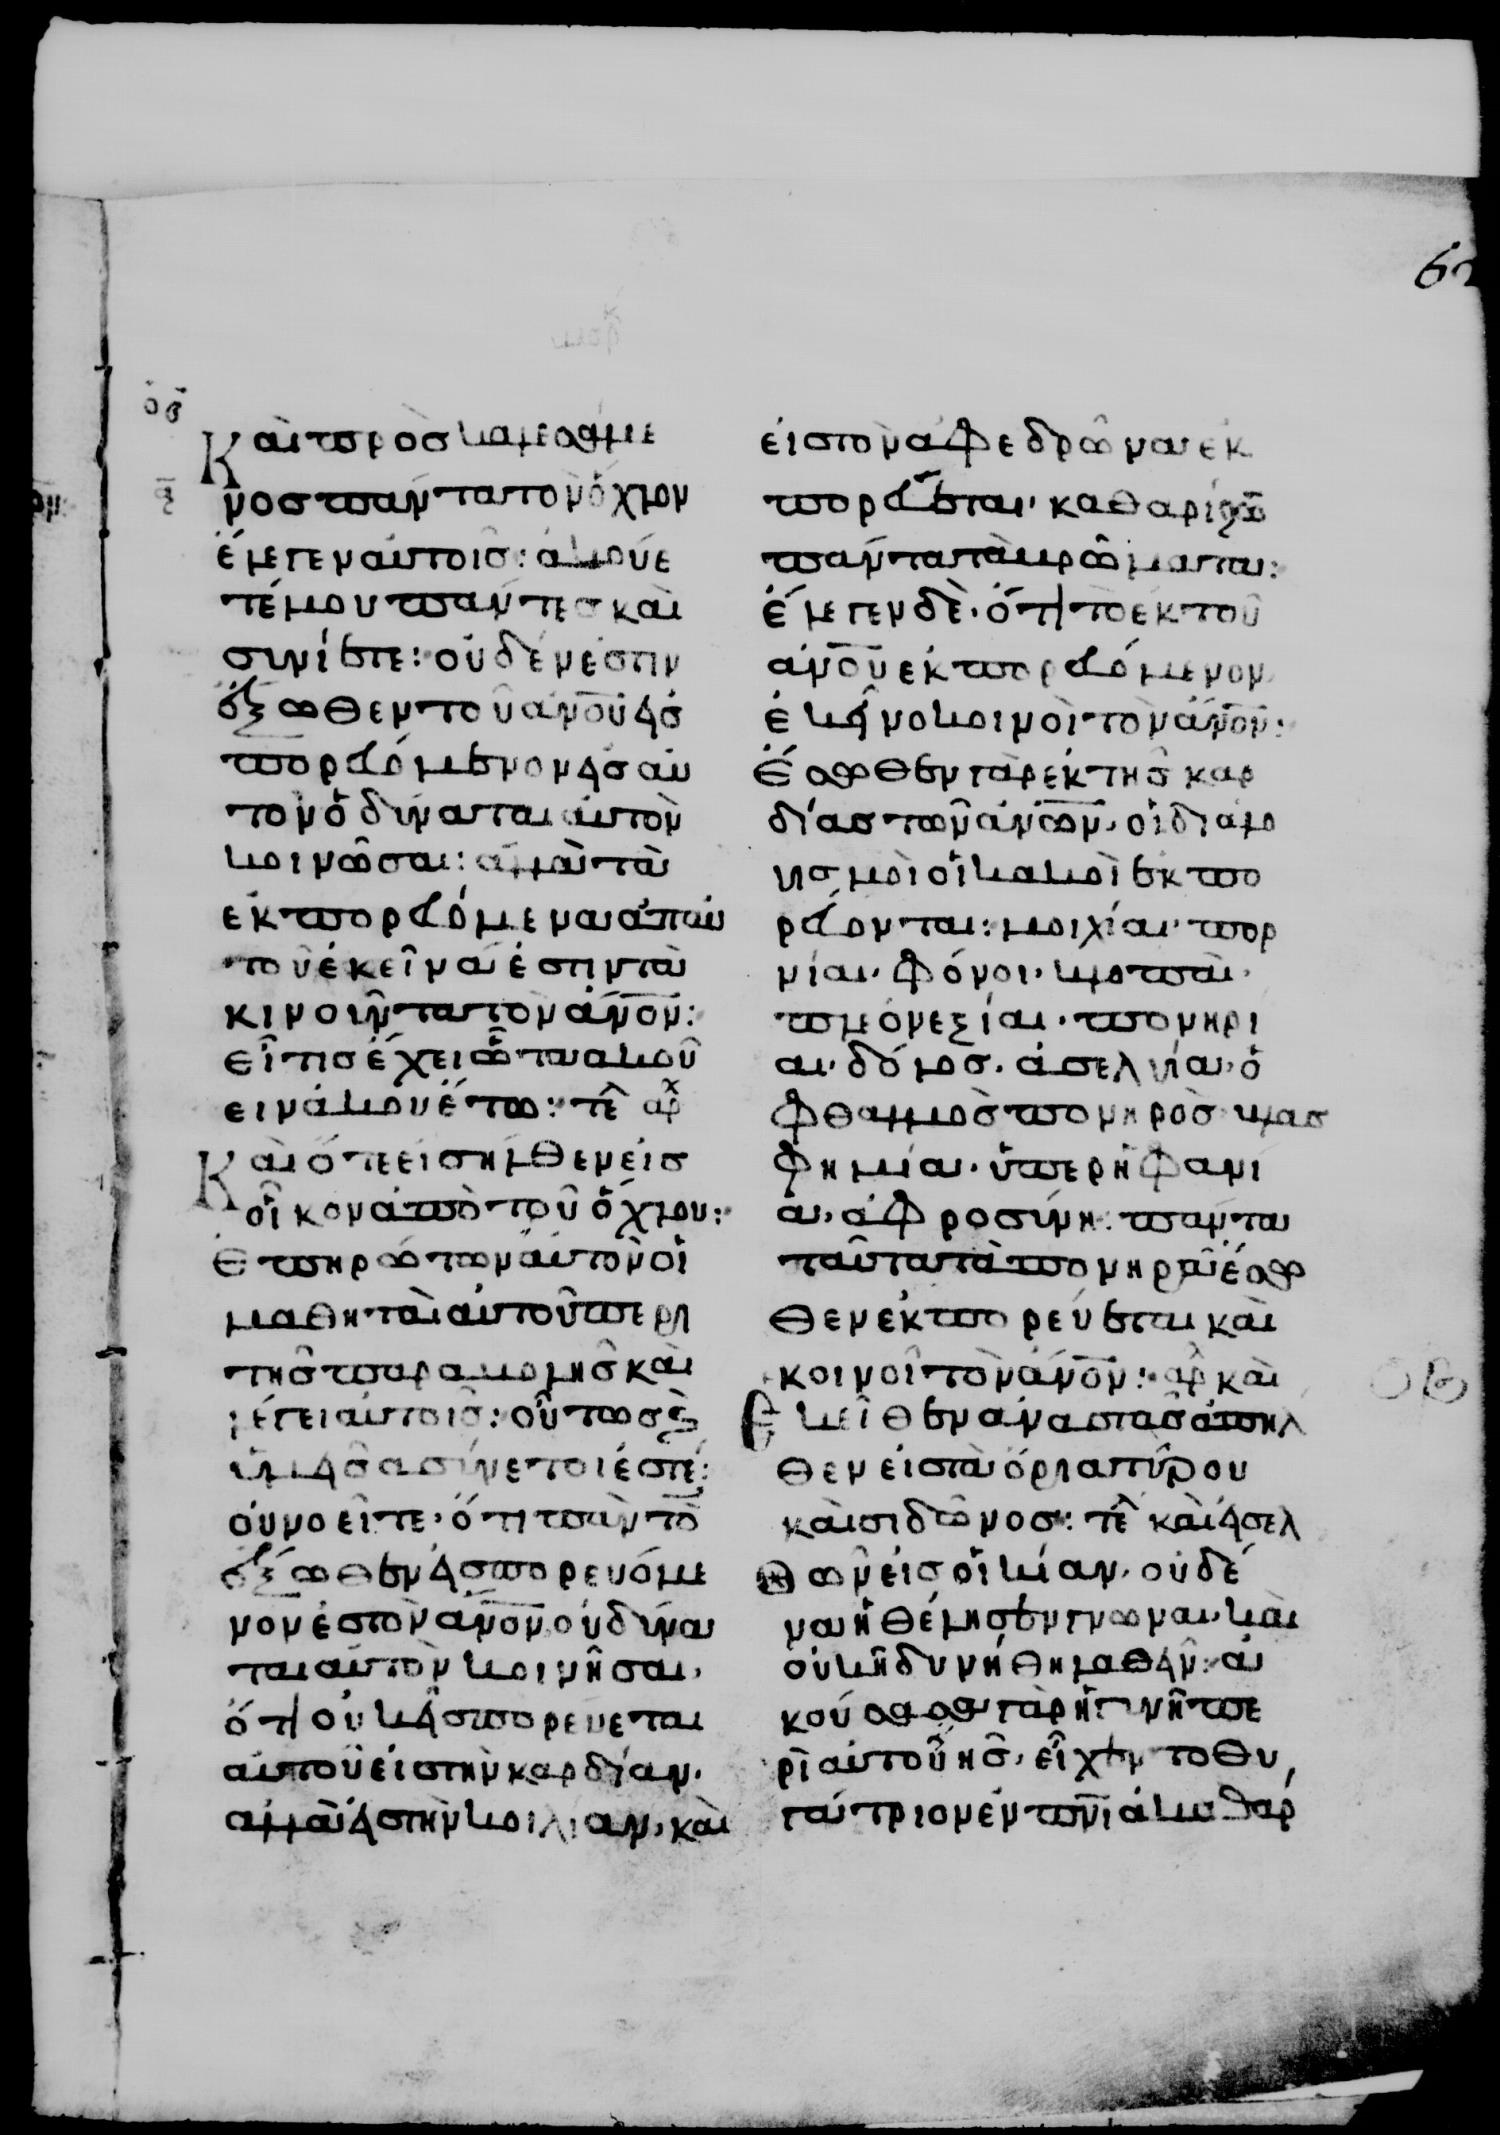 62
οβ
Καὶ προσκαλεσάμε
νος πάντα τον ὄχλον
ἔλεγεν αυτοις: ἀκούε
τέ μου πάντες καὶ
συνίετε: οὐδέν ἐστιν
ἔξωθεν του ἀνου εἰσ
πορευόμενον εἰς αυ
τον ὃ δύναται αυτὸν
κοινῶσαι: ἀλλὰ τὰ
ἐκπορευόμενα ἀπ αὐ
τοῦ ἐκεῖνα ἐστιν τὰ
κινοιντα τὸν ἄνον:
εἴ τις ἔχει ὦτα ακού
ειν ἀκουέτω: τε αρχ
Καὶ ὅτε εισηλθεν εἰς
οἶκον ἀπὸ τοῦ ὄχλου:
Επηρώτων αυτὸν οἱ
μαθηταὶ αὐτοῦ περι
της παραβολῆς καὶ
λέγει αυτοις: οὕτως κ
ὑμεις ασύνετοι ἐστέ:
ου νοεῖτε· ὅτι πὰν τὸ
ἔξωθεν εἰσπορευόμε
νον ἐς τὸν ανον οὐ δύνα
ται αὐτὸν κοινῆσαι,
ὅτι οὐκ εἰσπορευεται
αὐτοῦ εἰς τὴν καρδίαν.
αλλὰ εἰς τὴν κοιλίαν, καὶ
εἰς τον ἀφεδρῶνα ἐκ
πορεύεται· καθαρίζω
πάντα τὰ βρώματα:
ἔλεγεν δὲ· ὅτι τὸ ἐκ τοῦ
ἀνου ἐκπορευόμενον
ἐκεῖνο κοινοὶ τὸν ἄνον:
Ἔσωθεν γὰρ ἐκ της καρ
δίας τῶν ἀνων, οἱ διαλο
γισμοὶ οἱ κακοὶ ἐκπο
ρεύονται: μοιχίαι· πορ
νίαι· φόνοι· κλοπαὶ·
πλεονεξίαι· πονηρι
αι· δόλος. ἀσελγία, ὁ
φθαλμος πονηρὸς βλασ
φημία· ὑπερηφανι
α, ἀφροσύνη: παντα
ταῦτα τὰ πονηρὰ ἔσω
θεν ἐκπορεύεται καὶ
κοινοῖ τὸν ἄνον: αρ καὶ
Εκεῖθεν ἀναστας ἀπηλ
θεν εἰς τὰ ὅρια τύρου
καὶ σιδῶνος: τε καὶ εἰσελ
θων εἰς οἰκίαν, οὐδέ
να ἤθέλησεν γνωναι, καὶ
οὐκ ηδυνήθη λαθεῖν: ἀ
κούσασα γὰρ ἡ γυνὴ πε
ρὶ αὐτοῦ ης, εἶχεν το θυ,
γάτριον ἐν πνι ἀκαθάρ
οβ